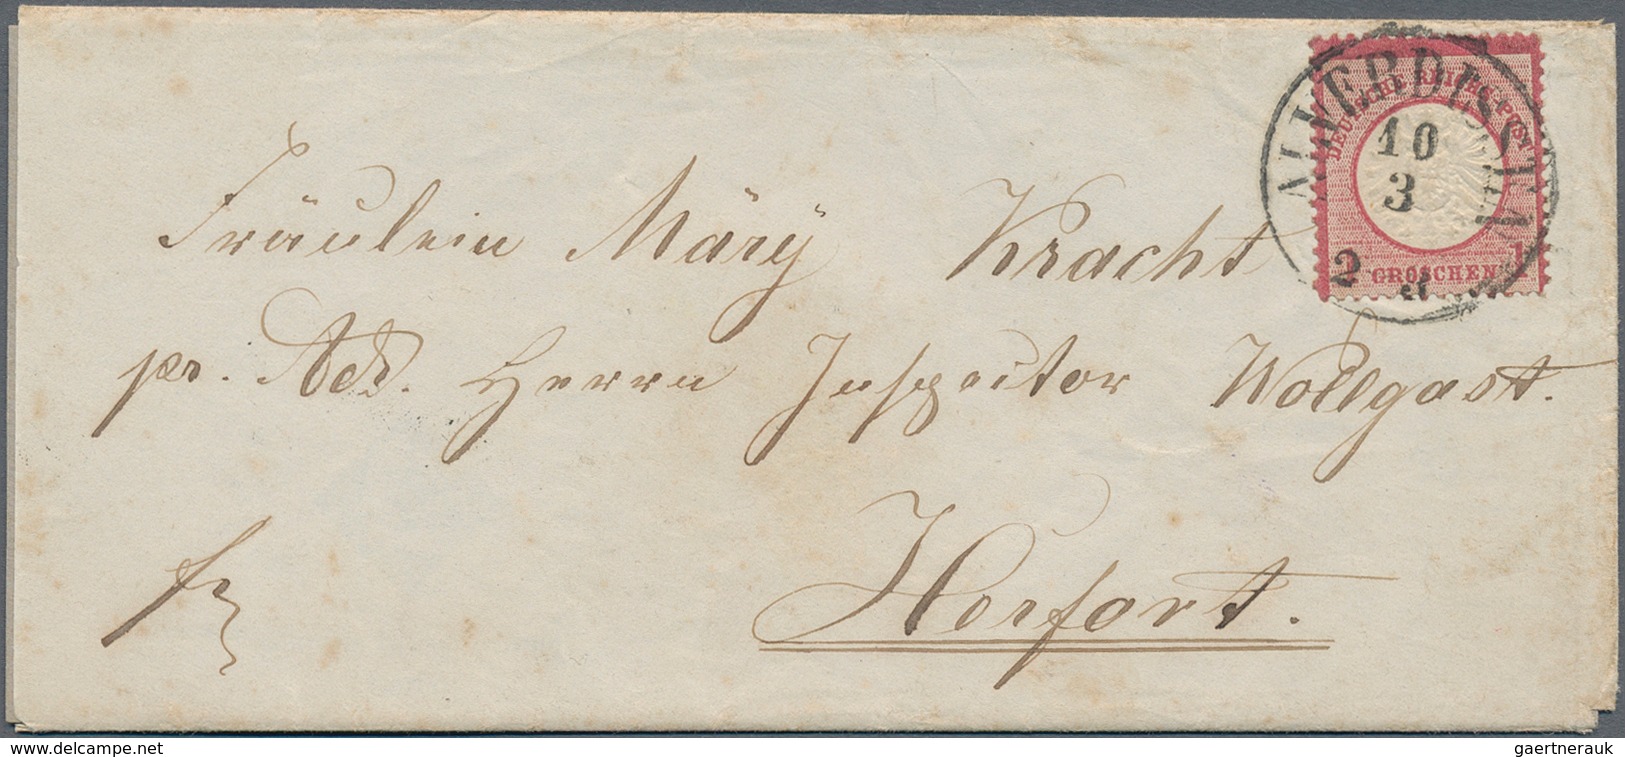 ALVERDISSEN
10
3
2
DEUTSCHE REICHS-POST
1 GROSCHEN 1
Fräulein Märÿ Kracht
pr. Adr. Herrn Inspector Wollgast.
Herfort.
fr
delcampe.net
gaertnerauk